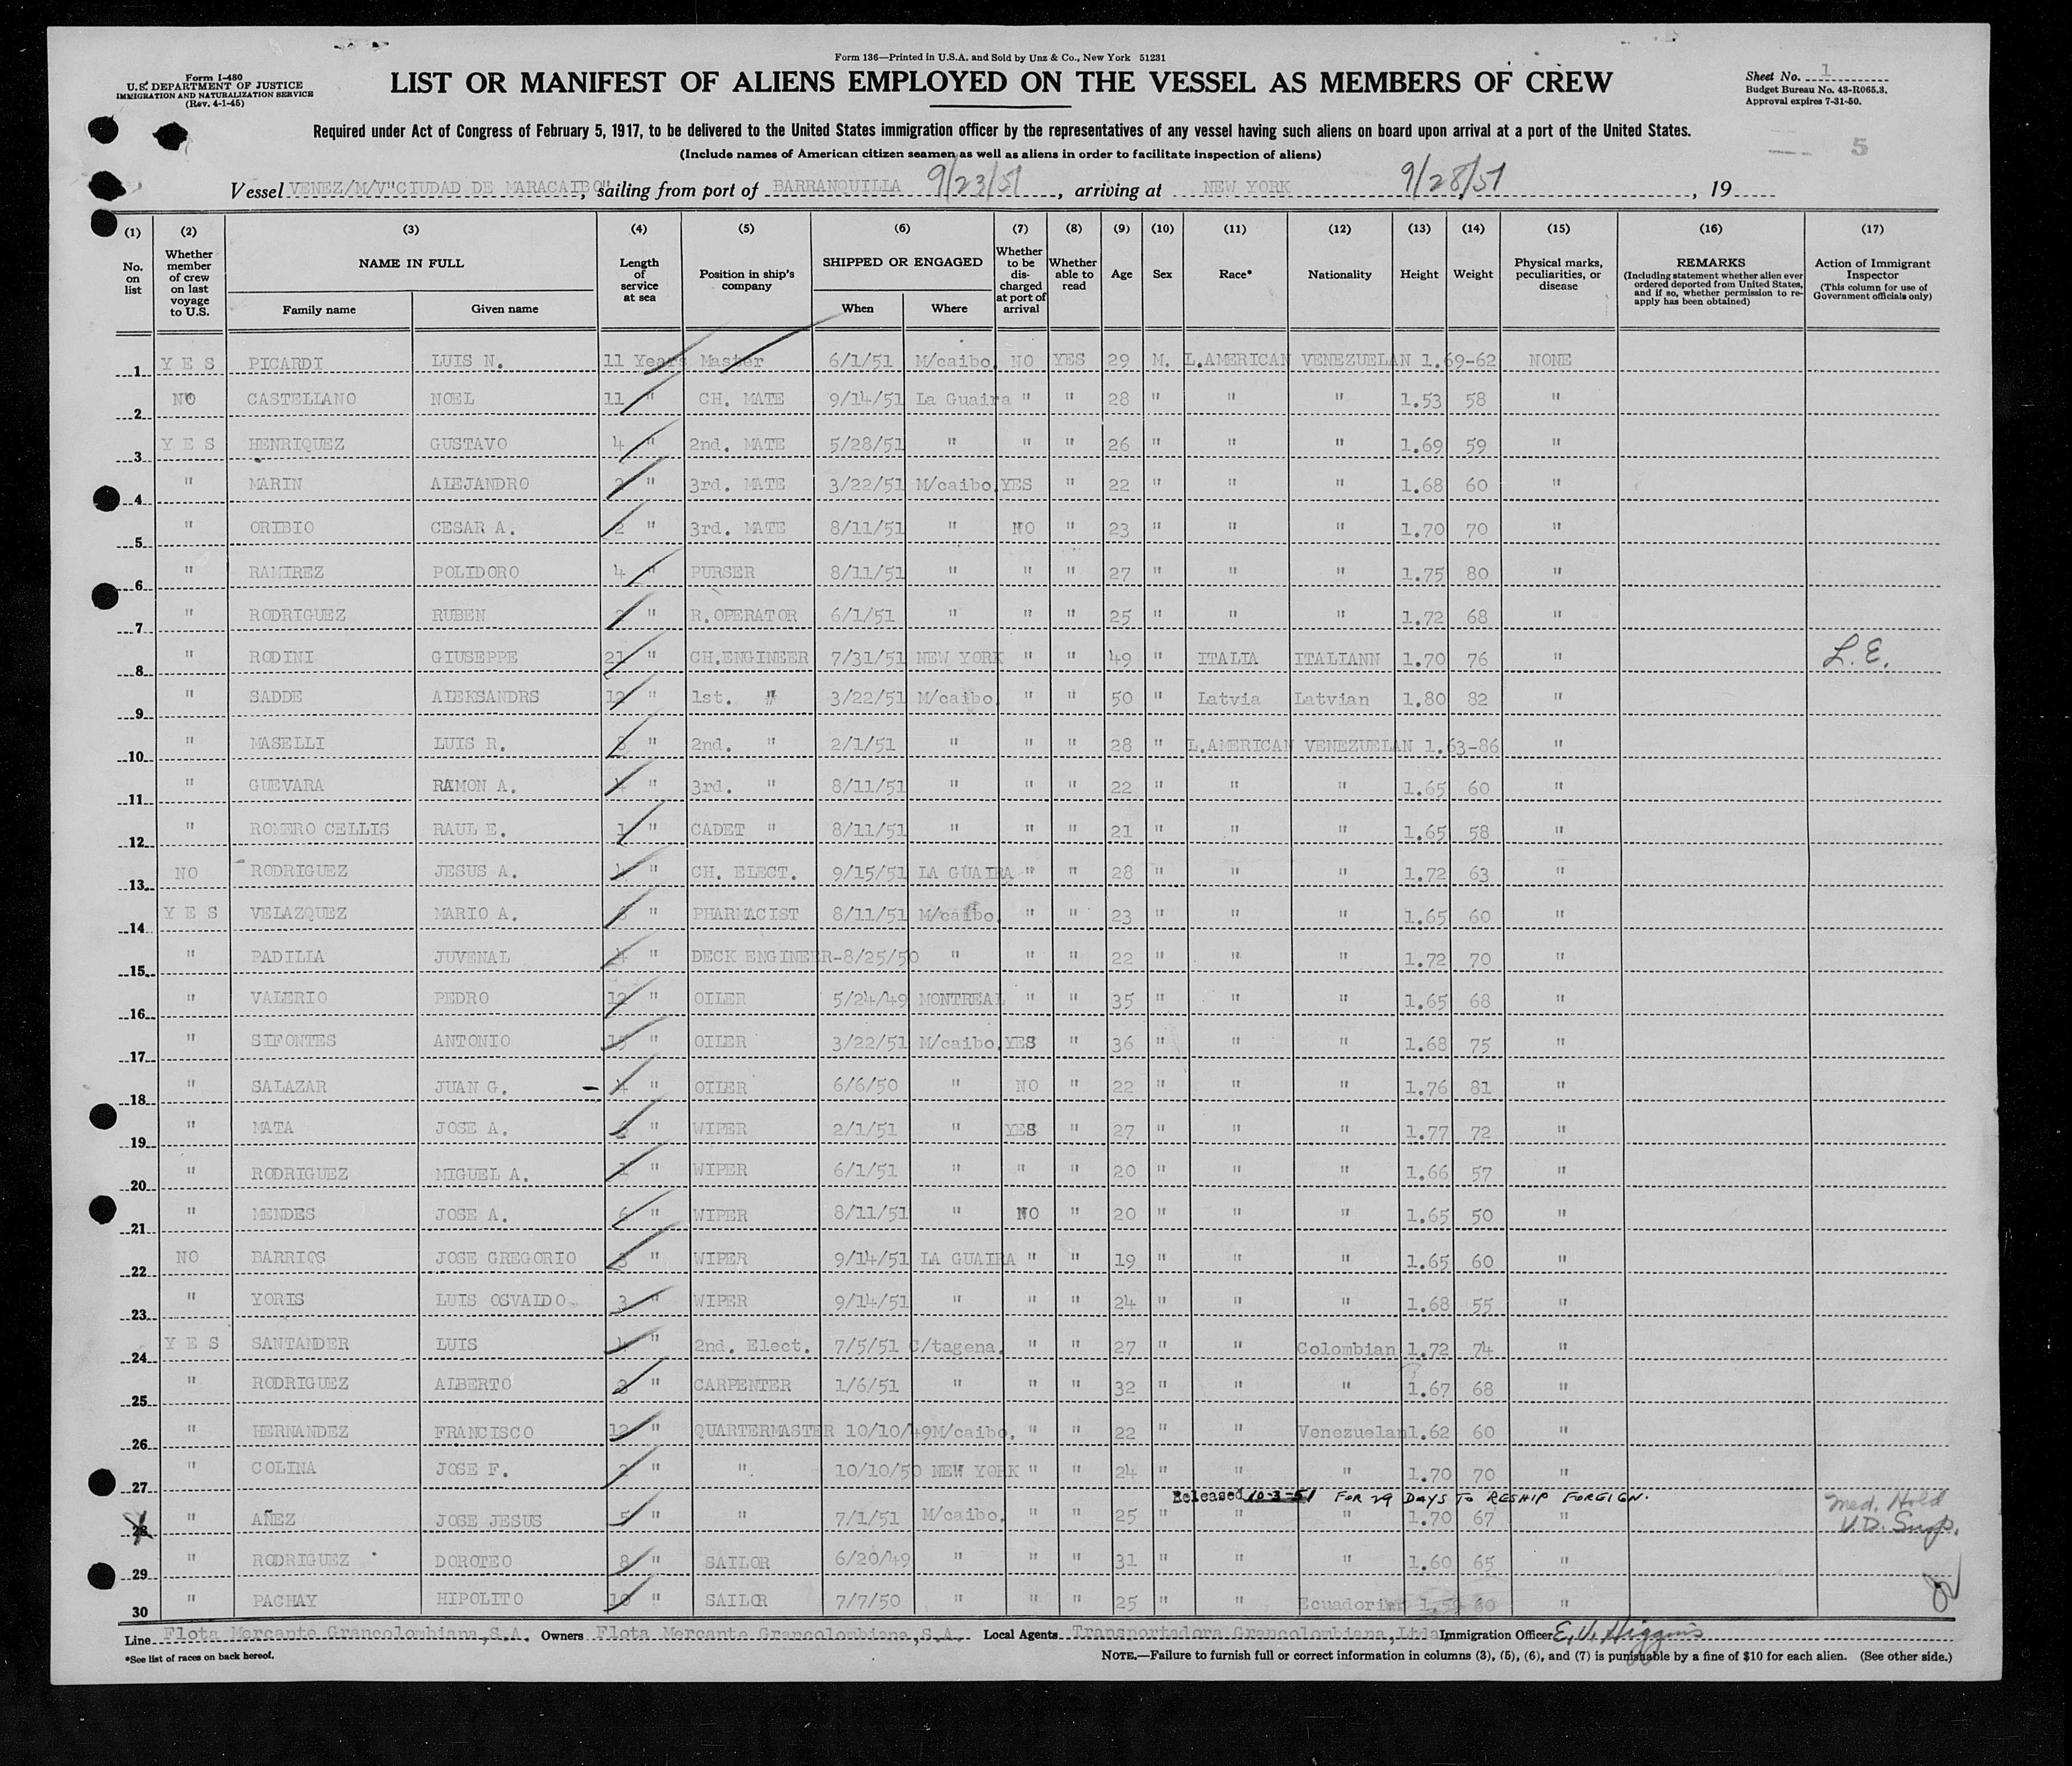 Form 136—Printed in U.S.A. and Sold by Unz & Co., New York 51231
Form I-480
U.S. DEPARTMENT OF JUSTICE
IMMIGRATION AND NATURALIZATION SERVICE
(Rev. 4-1-45)
LIST OR MANIFEST OF ALIENS EMPLOYED ON THE VESSEL AS MEMBERS OF CREW
Sheet No. 1
Budget Bureau No. 43-R065.3.
Approval expires 7-31-50.
Required under Act of Congress of February 5, 1917, to be delivered to the United States immigration officer by the representatives of any vessel having such aliens on board upon arrival at a port of the United States.
(Include names of American citizen seamen as well as aliens in order to facilitate inspection of aliens)
5
Vessel VENEZ/M/V"CIUDAD DE MARACAIBO", sailing from port of BARRANQUILLA 9/23/51, arriving at NEW YORK 9/28/51, 19
(1) (2) (3) (4) (5) (6) (7) (8) (9) (10) (11) (12) (13) (14) (15) (16) (17)
No. on list
Whether member of crew on last voyage to U.S.
NAME IN FULL
Family name
Given name
Length of service at sea
Position in ship's company
SHIPPED OR ENGAGED
When
Where
Whether to be discharged at port of arrival
Whether able to read
Age
Sex
Race*
Nationality
Height
Weight
Physical marks, peculiarities, or disease
REMARKS
(Including statement whether alien ever ordered deported from United States, and if so, whether permission to reapply has been obtained)
Action of Immigrant Inspector
(This column for use of Government officials only)
1 YES PICARDI LUIS N. 11 Years Master 6/1/51 M/caibo. NO YES 29 M. L.AMERICAN VENEZUELAN 1.69-62 NONE
2 NO CASTELLANO NOEL 11 " CH. MATE 9/14/51 La Guaira " " 28 " " " 1.53 58 "
3 YES HENRIQUEZ GUSTAVO 4 " 2nd. MATE 5/28/51 " " " 26 " " " 1.69 59 "
4 " MARIN ALEJANDRO " 3rd. MATE 3/22/51 M/caibo. YES " 22 " " " 1.68 60 "
5 " ORIBIO CESAR A. 2 " 3rd. MATE 8/11/51 " NO " 23 " " " 1.70 70 "
6 " RAMIREZ POLIDORO 4 " PURSER 8/11/51 " " " 27 " " " 1.75 80 "
7 " RODRIGUEZ RUBEN " R.OPERATOR 6/1/51 " " " 25 " " " 1.72 68 "
8 " RODINI GIUSEPPE 21 " CH.ENGINEER 7/31/51 NEW YORK " " 49 " ITALIA ITALIANN 1.70 76 " L.E.
9 " SADDE ALEKSANDRS 12 " 1st. " 3/22/51 M/caibo. " " 50 " Latvia Latvian 1.80 82 "
10 " MASELLI LUIS R. " 2nd. " 2/1/51 " " " 28 " L.AMERICAN VENEZUELAN 1.63-86 "
11 " GUEVARA RAMON A. " 3rd. " 8/11/51 " " " 22 " " " 1.65 60 "
12 " ROMERO CELLIS RAUL E. 1 " CADET " 8/11/51 " " " 21 " " " 1.65 58 "
13 NO RODRIGUEZ JESUS A. " CH. ELECT. 9/15/51 LA GUAIRA " " 28 " " " 1.72 63 "
14 YES VELAZQUEZ MARIO A. " PHARMACIST 8/11/51 M/caibo. " " 23 " " " 1.65 60 "
15 " PADILLA JUVENAL " DECK ENGINEER-8/25/50 " " " 22 " " " 1.72 70 "
16 " VALERIO PEDRO 12 " OILER 5/24/49 MONTREAL " " 35 " " " 1.65 68 "
17 " SIFONTES ANTONIO 15 " OILER 3/22/51 M/caibo. YES " 36 " " " 1.68 75 "
18 " SALAZAR JUAN G. 4 " OILER 6/6/50 " NO " 22 " " " 1.76 81 "
19 " MATA JOSE A. " WIPER 2/1/51 " YES " 27 " " " 1.77 72 "
20 " RODRIGUEZ MIGUEL A. 1 " WIPER 6/1/51 " " " 20 " " " 1.66 57 "
21 " MENDES JOSE A. 6 " WIPER 8/11/51 " NO " 20 " " " 1.65 50 "
22 NO BARRIOS JOSE GREGORIO 3 " WIPER 9/14/51 LA GUAIRA " " 19 " " " 1.65 60 "
23 " YORIS LUIS OSVALDO 3 " WIPER 9/14/51 " " " 24 " " " 1.68 55 "
24 YES SANTANDER LUIS 4 " 2nd. Elect. 7/5/51 C/tagena. " " 27 " " Colombian 1.72 74 "
25 " RODRIGUEZ ALBERTO " CARPENTER 1/6/51 " " " 32 " " " 1.67 68 "
26 " HERNANDEZ FRANCISCO 12 " QUARTERMASTER 10/10/49 M/caibo. " " 22 " " Venezuelan 1.62 60 "
27 " COLINA JOSE F. 2 " " 10/10/50 NEW YORK " " 24 " " " 1.70 70 "
Released 10-3-51 FOR 29 DAYS TO RESHIP FOREIGN.
28 " AÑEZ JOSE JESUS 5 " " 7/1/51 M/caibo. " " 25 " " " 1.70 67 " Med. Hold V.D. Susp.
29 " RODRIGUEZ DOROTEO 8 " SAILOR 6/20/49 " " " 31 " " " 1.60 65 "
30 " PACHAY HIPOLITO 10 " SAILOR 7/7/50 " " " 25 " " Ecuadorian 60 "
Line Flota Mercante Grancolombiana,S.A. Owners Flota Mercante Grancolombiana,S.A. Local Agents Transportadora Grancolombiana,Ltda Immigration Officer E.J. Higgins
*See list of races on back hereof.
NOTE.—Failure to furnish full or correct information in columns (3), (5), (6), and (7) is punishable by a fine of $10 for each alien. (See other side.)